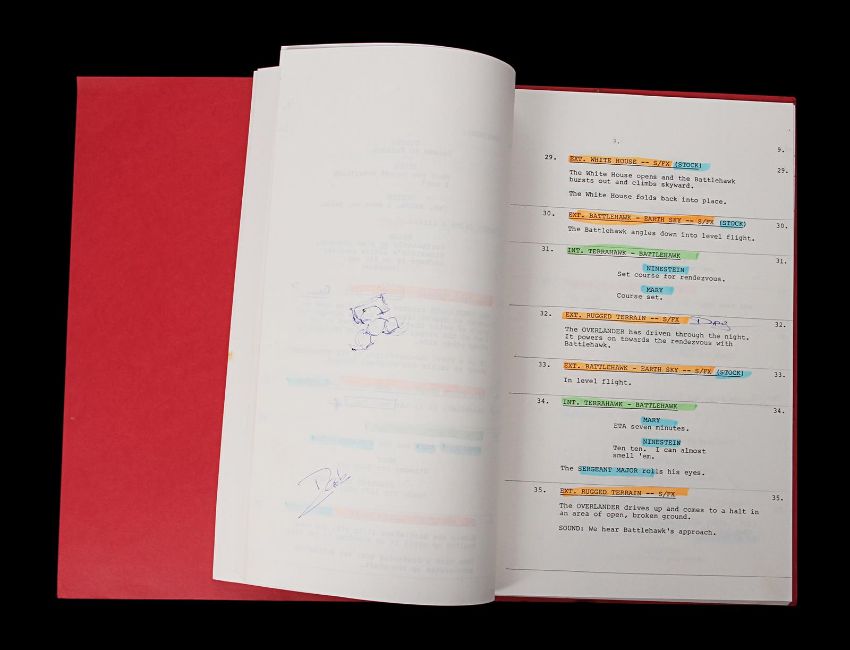 9.
29. EXT. WHITE HOUSE -- S/FX (STOCK) 29.
The White House opens and the Battlehawk
bursts out and climbs skyward.
The White House folds back into place.
30. EXT. BATTLEHAWK - EARTH SKY -- S/FX (STOCK) 30.
The Battlehawk angles down into level flight.
31. INT. TERRAHAWK - BATTLEHAWK 31.
NINESTEIN
Set course for rendezvous.
MARY
Course set.
32. EXT. RUGGED TERRAIN -- S/FX 32.
The OVERLANDER has driven through the night.
It powers on towards the rendezvous with
Battlehawk.
33. EXT. BATTLEHAWK - EARTH SKY -- S/FX (STOCK) 33.
In level flight.
34. INT. TERRAHAWK - BATTLEHAWK 34.
MARY
ETA seven minutes.
NINESTEIN
Ten ten. I can almost
smell 'em.
The SERGEANT MAJOR rolls his eyes.
35. EXT. RUGGED TERRAIN -- S/FX 35.
The OVERLANDER drives up and comes to a halt in
an area of open, broken ground.
SOUND: We hear Battlehawk's approach.